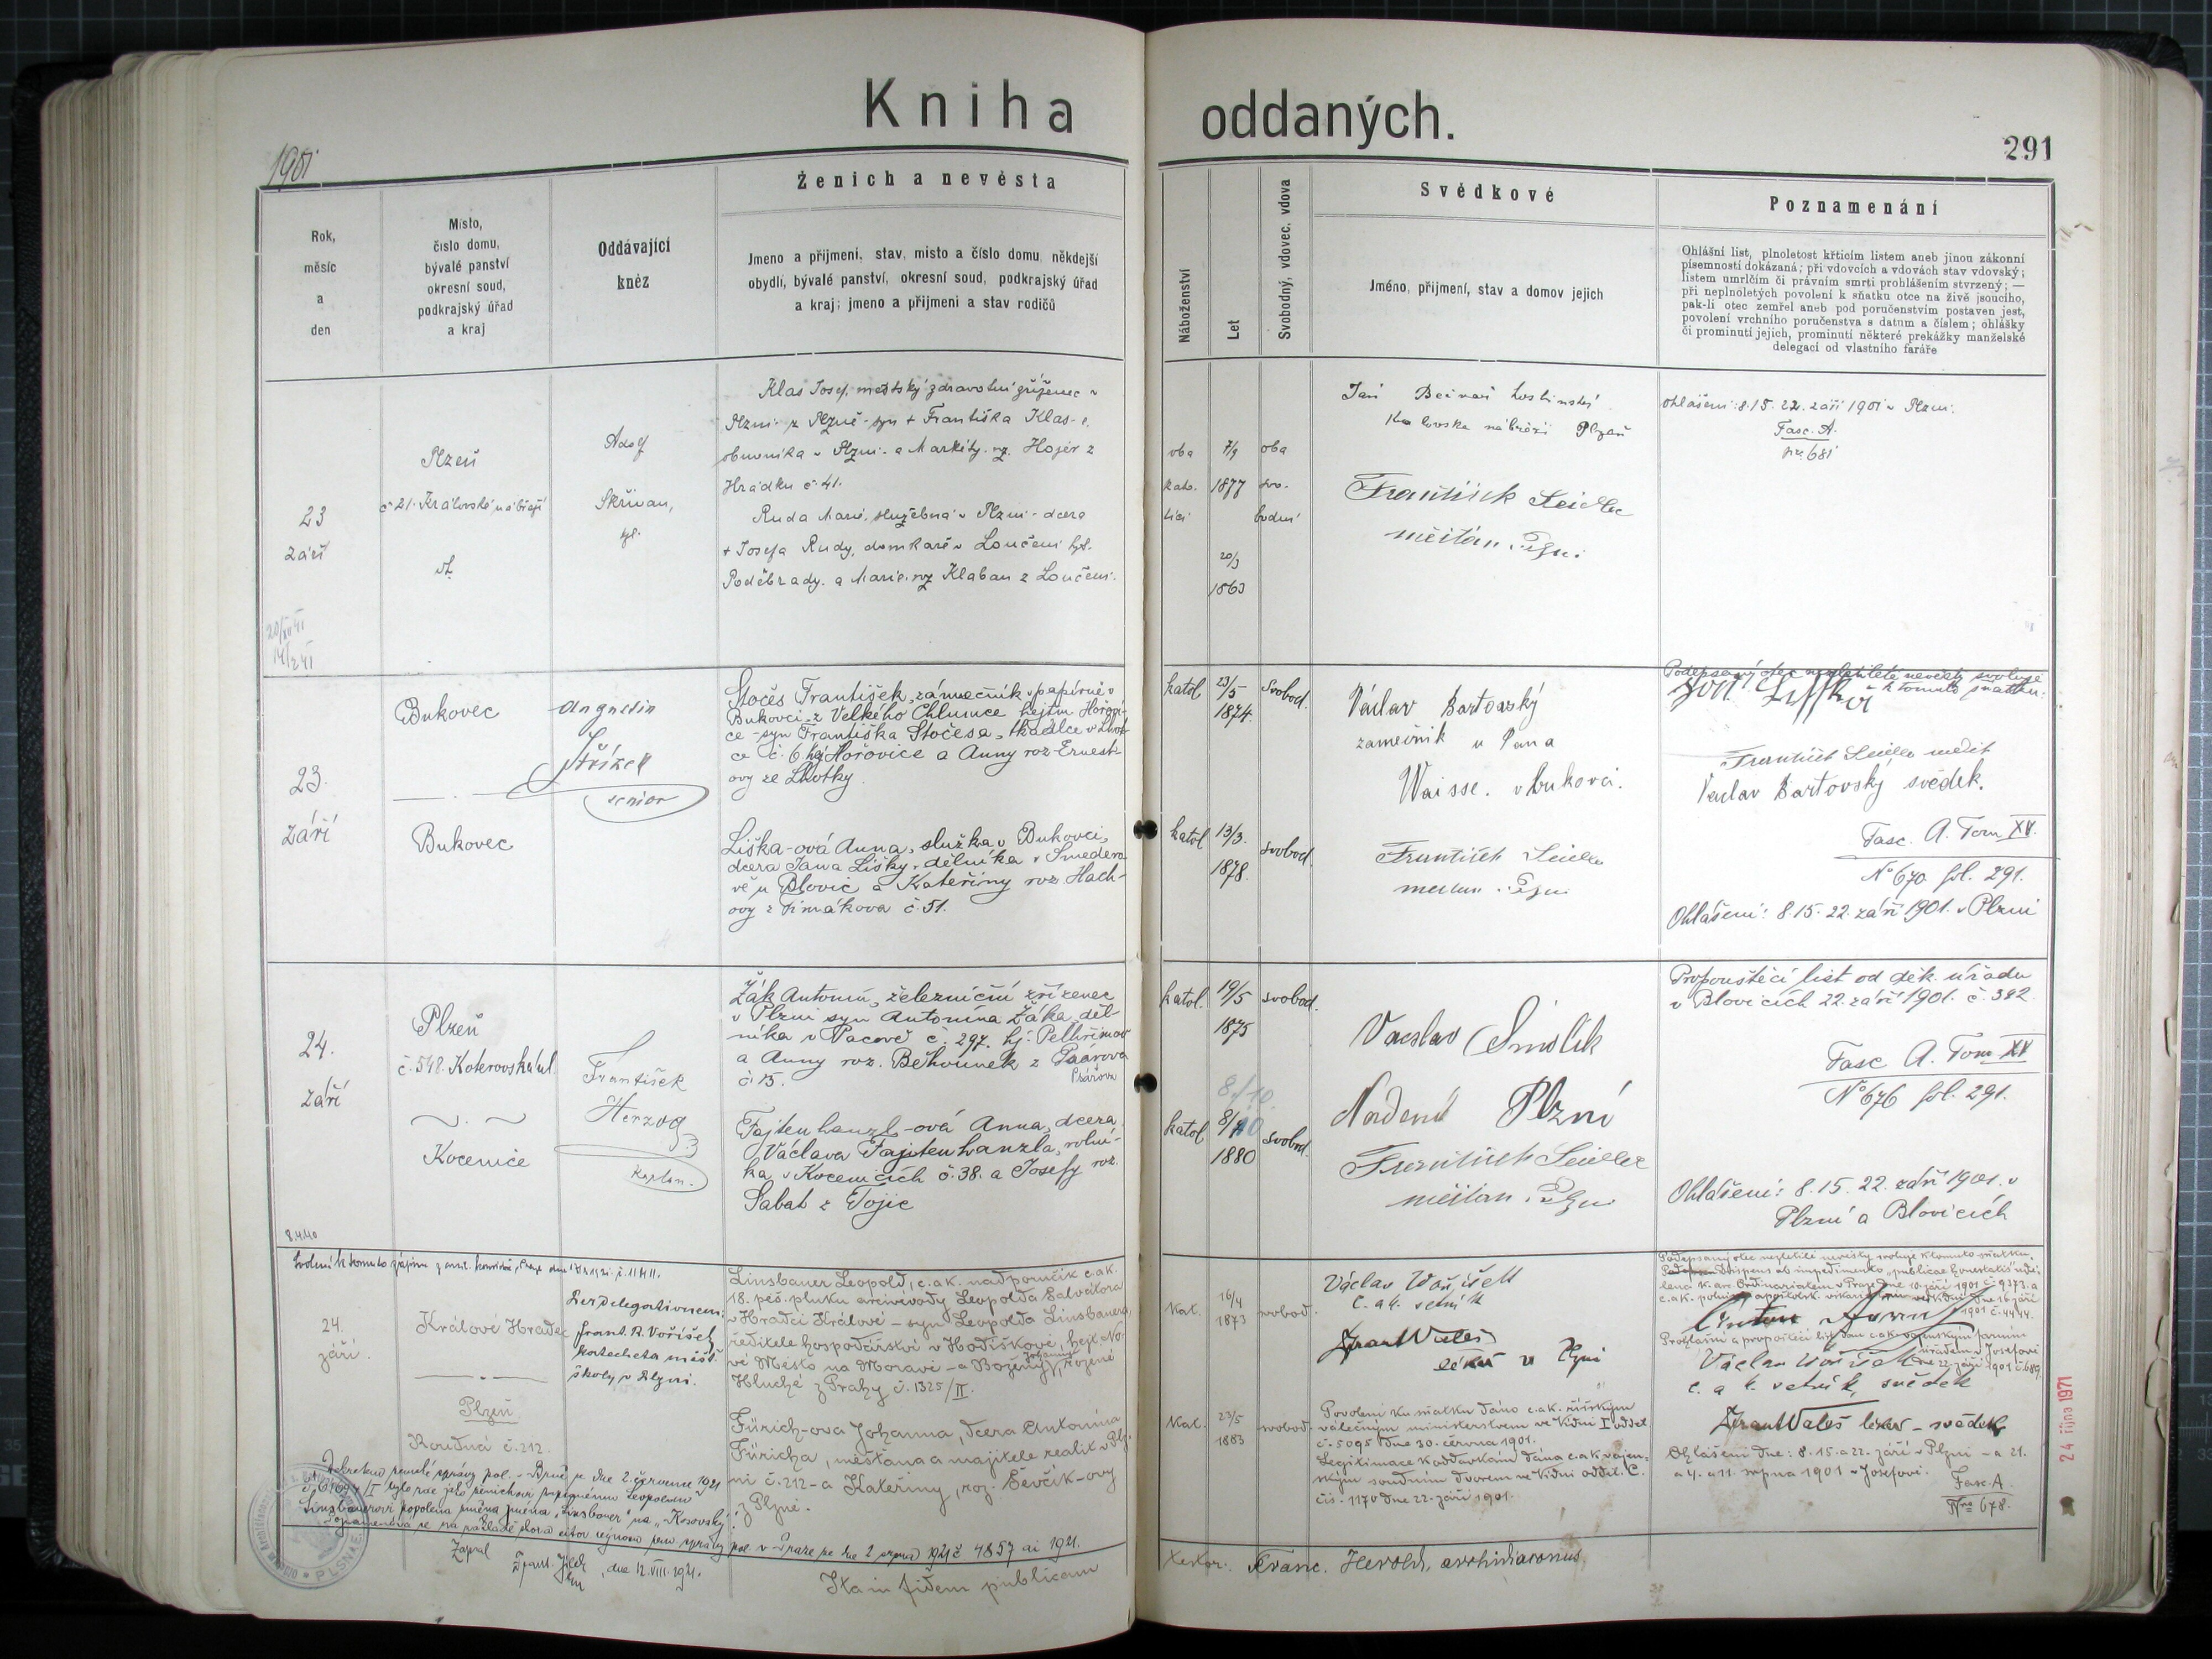 Kniha oddaných.
1901
291
Rok,
měsíc
a
den
Místo,
číslo domu,
bývalé panství
okresní soud,
podkrajský úřad
a kraj
Oddávající
kněz
Ženich a nevěsta
Jmeno a příjmeni, stav, misto a číslo domu, někdejší
obydlí, bývalé panství, okresní soud, podkrajský úřad
a kraj; jmeno a přijmeni a stav rodičů
Náboženství
Let
Svobodný, vdovec, vdova
Svědkové
Jméno, přijmení, stav a domov jejich
Poznamenání
Ohlášní list, plnoletost křticím listem aneb jinou zákonní
písemností dokázaná; při vdovcích a vdovách stav vdovský;
listem umrlčím či právním smrti prohlášením stvrzený; —
při neplnoletých povolení k sňatku otce na živě jsoucího,
pak-li otec zemřel aneb pod poručenstvím postaven jest,
povolení vrchního poručenstva s datum a číslem; ohlášky
či prominutí jejich, prominutí některé prekážky manželské
delegací od vlastního faráře
23
září
Plzeň
č 21. Královské nábřeží
Adolf
Skřivan,
Klas Josef, městský zdravotní zřízenec v
Plzni z Plzně - syn + Františka Klas-
obuvníka v Plzni a Markéty roz. Hojer z
Hrádku č 41.
Ruda Marie, služebná v Plzni - dcera
+ Josefa Rudy, domkáře v Loučeni hjt.
Poděbrady. a Marie roz Klaban z Loučeni.
oba
kato-
líci
7/9
1877
20/3
1863
oba
svo-
bodní
Jan
hostinský
nábřeží Plzeň
František Seidler
měšťan v Plzni
Ohlášení: 8. 15. 22. září 1901 v Plzni.
Fasc. A.
681
23.
září
Bukovec
Bukovec
Augustin
Střížek
senior
Stočes František, zámečník v papírně v
Bukovci z Velkého Chlumce hejtm. Hořovi-
ce - syn Františka Stočesa, tkadlce v Lhot-
ce č. 6 hej. Hořovice a Anny roz. Ernest-
ovy ze Lhotky.
Liška-ová Anna, služka v Bukovci,
dcera Jana Lišky, dělníka v Smedero
vě u Blovic a Kateřiny roz. Hach-
ovy z Timákova č. 51.
katol
23/5
1874
svobod.
katol
13/3.
1878.
svobod.
Václav Bartovský
zámečník u Pana
Waisse. v bukovci.
František Seidler
Podepsaný otec nezletilé nevěsty svoluje
k tomuto sňatku.
František Seidler
Václav Bartovský svědek.
Fasc. A. Tom XV.
No 670 fol. 291.
Ohlášení: 8. 15. 22. září 1901. v Plzni
24.
září
Plzeň
č. 548. Koterovská ul.
Kocenice
František
Herzog
kaplan.
Žák Antonín, železniční zřízenec
v Plzni syn Antonína Žáka, děl-
níka v Pacově č. 297. hj. Pelhřimov
a Anny roz. Běhounek z Psárova
č. 15.
Psářova
Fajtenhanzl-ová Anna, dcera
Václava Fajtenhanzla, rolní-
ka v Kocenicích č. 38. a Josefy roz.
Sabat z Tojic
katol.
19/5
1875
svobod.
8./10.
katol
8/10
1880
svobod.
Vácslav Smolík
Plzni
František Seidler
měšťan v Plzni
Propouštěcí list od děk. úřadu
v Blovicích 22. září 1901. č. 392.
Fasc A. Tom XV
No 676 fol. 291.
Ohlášení: 8. 15. 22. září 1901. v
Plzni a Blovicích
8.4.40
24.
září.
Králové Hradec
Plzeň
Roudná č. 212.
Per delegationem:
Frant. R. Voříšek
katecheta měšť.
školy v Plzni.
Linsbauer Leopold, c. a k. nadporučík c. a k.
18. pěš. pluku arcivévody Leopolda Salvátora
v Hradci Králové - syn Leopolda Linsbauera,
ředitele hospodářství v Hodiškově, hejt. No-
vé Město na Moravě - a Boženy rozené
Hluché z Prahy č. 1325/II.
Fürich-ová Johanna, dcera Antonína
Füricha, měšťana a majitele realit v Plz-
ni č. 212 - a Kateřiny, roz. Ševčík-ovy
z Plzně.
Kat.
16/4
1873
svobod.
Kat.
23/5
1883
svobod.
Václav Voříšek
c. a k. setník
Frant Waleš
lékař v Plzni
Povolení ku sňatku dáno c. a k. říšským
válečným ministerstvem ve Vídni I. oddel.
č. 5095 dne 30. června 1901.
Legitimace k oddavkám dána c. a k. vojen-
ským soudním dvorem ve Vídni odděl. C.
čís. 1170 dne 22. září 1901.
Podepsaný otec nezletilé nevěsty svoluje k tomuto sňatku.
Václav Voříšek
c. a k. setník, svědek
Frant Waleš lékař - svědek
Ohlášení dne: 8. 15. a 22. září v Plzni - a 21.
a 4. a 11. srpna 1901 v Josefově.
Fasc. A
Nro 678.
24 října 1971
Dekretem zemské správy pol. v Brně ze dne 2. července 1921
pol. v Praze ze dne 2 srpna 1921 č 4857 ai 1921.
Zapsal
dne 12. VIII. 1921.
PLSNAE
Ita in fidem publicam
Franc. Herold, archidiaconus